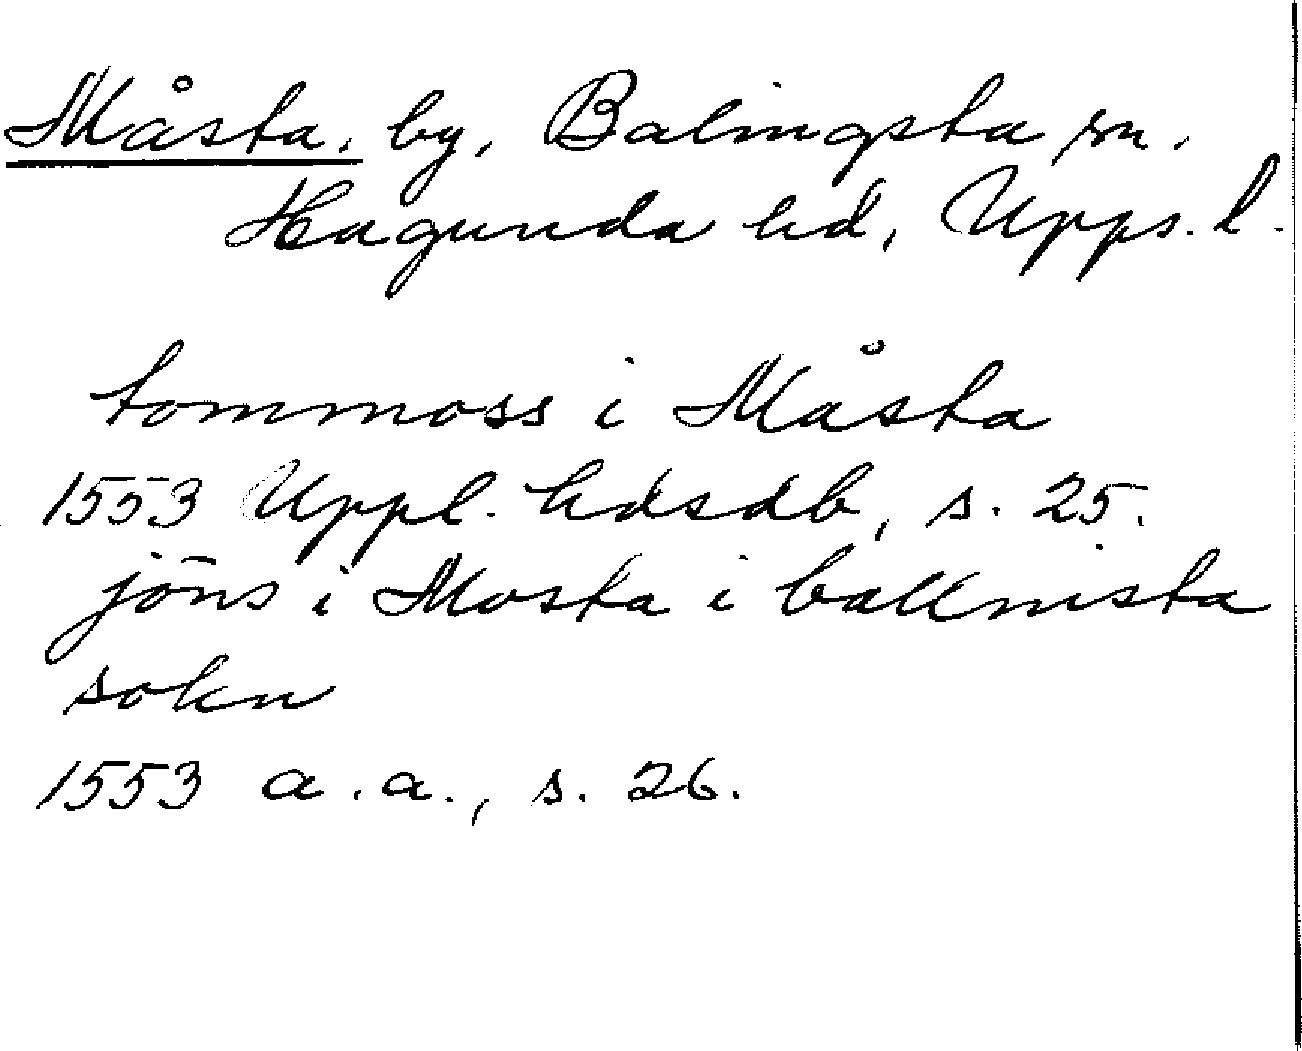 Måsta, by, Balingsta sn,
Hagunda hd, Upps. l.
tommoss i Måsta
1553 Uppl. hdsdb, s. 25.
jöns i Mosta i ballnista
sokn
1553 a.a., s. 26.